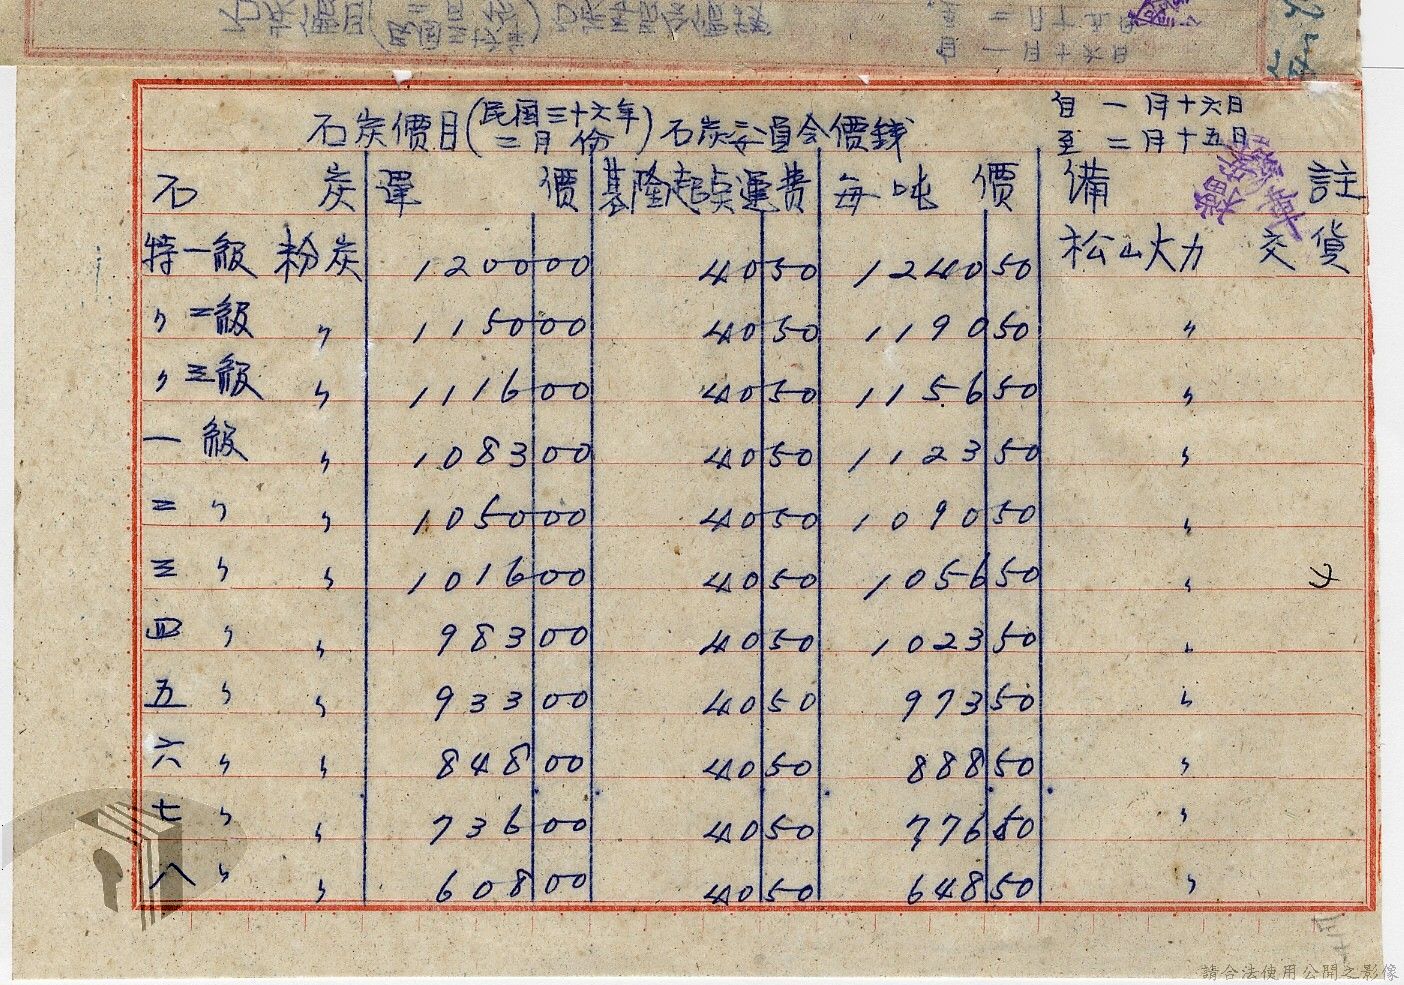 石炭價目(民国三十六年二月份)石炭委員会價錢 自一月十六日至二月十五日
石炭 運價 基隆起点運費 每吨價 備註
特一級 粉炭 1200 00 40 50 1240 50 松山火力 交貨
〃二級 〃 1150 00 40 50 1190 50 〃
〃三級 〃 1116 00 40 50 1156 50 〃
一級 〃 1083 00 40 50 1123 50 〃
二〃 〃 1050 00 40 50 1090 50 〃
三〃 〃 1016 00 40 50 1056 50 〃
四〃 〃 983 00 40 50 1023 50 〃
五〃 〃 933 00 40 50 973 50 〃
六〃 〃 848 00 40 50 888 50 〃
七〃 〃 736 00 40 50 776 50 〃
八〃 〃 608 00 40 50 648 50 〃
請合法使用公開之影像